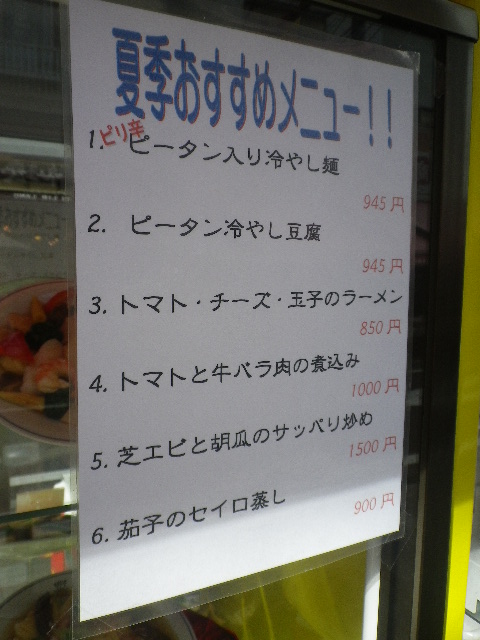 夏季おすすめメニュー！！
1. ピリ辛 ピータン入り冷やし麺
945 円
2. ピータン冷やし豆腐
945 円
3. トマト・チーズ・玉子のラーメン
850 円
4. トマトと牛バラ肉の煮込み
1000 円
5. 芝エビと胡瓜のサッパリ炒め
1500 円
6. 茄子のセイロ蒸し
900 円